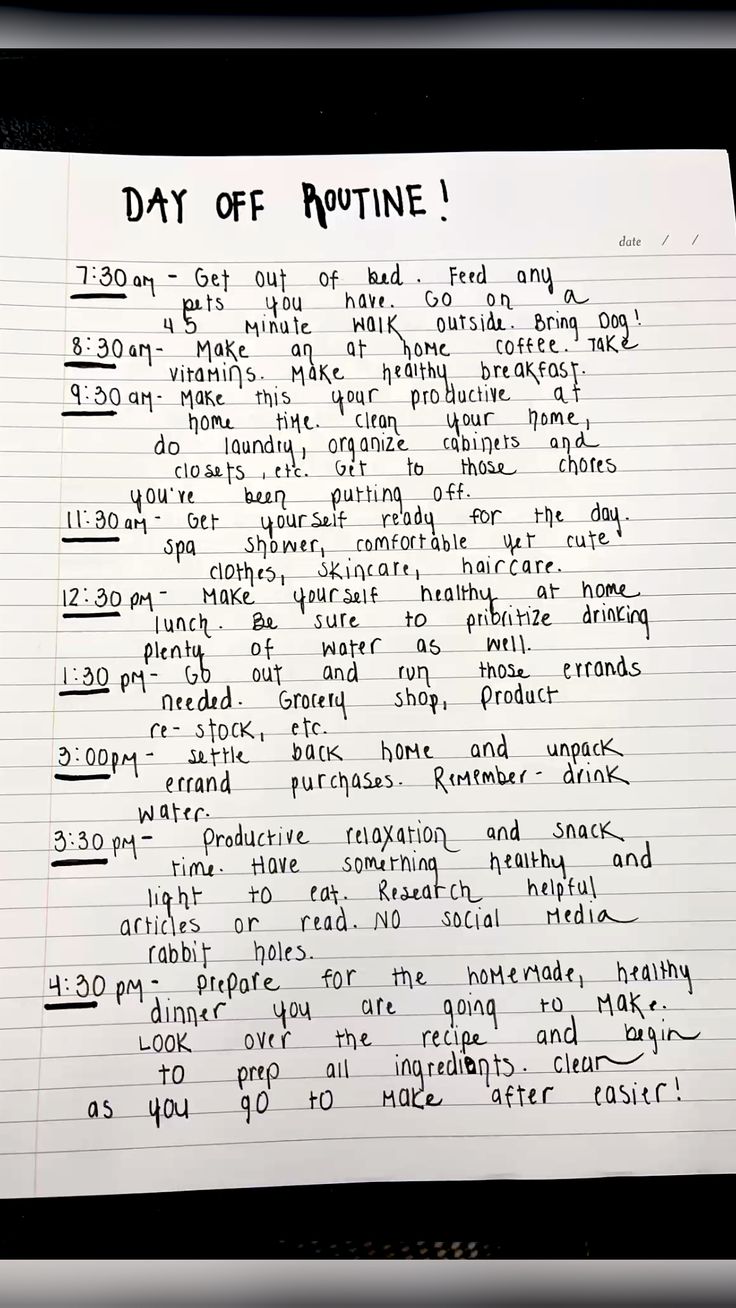 DAY OFF ROUTINE!
date / /
7:30 am - Get out of bed. Feed any
pets you have. Go on a
45 minute walk outside. Bring Dog!
8:30 am - Make an at home coffee. Take
vitamins. Make healthy breakfast.
9:30 am - Make this your productive at
home time. Clean your home,
do laundry, organize cabinets and
closets, etc. Get to those chores
you've been putting off.
11:30 am - Get yourself ready for the day.
spa shower, comfortable yet cute
clothes, skincare, haircare.
12:30 pm - Make yourself healthy at home
lunch. Be sure to prioritize drinking
plenty of water as well.
1:30 pm - Go out and run those errands
needed. Grocery shop, Product
re-stock, etc.
3:00 pm - settle back home and unpack
errand purchases. Remember - drink
water.
3:30 pm - Productive relaxation and snack
time. Have something healthy and
light to eat. Research helpful
articles or read. NO social Media
rabbit holes.
4:30 pm - prepare for the homemade, healthy
dinner you are going to make.
LOOK over the recipe and begin
to prep all ingredients. clean
as you go to make after easier!